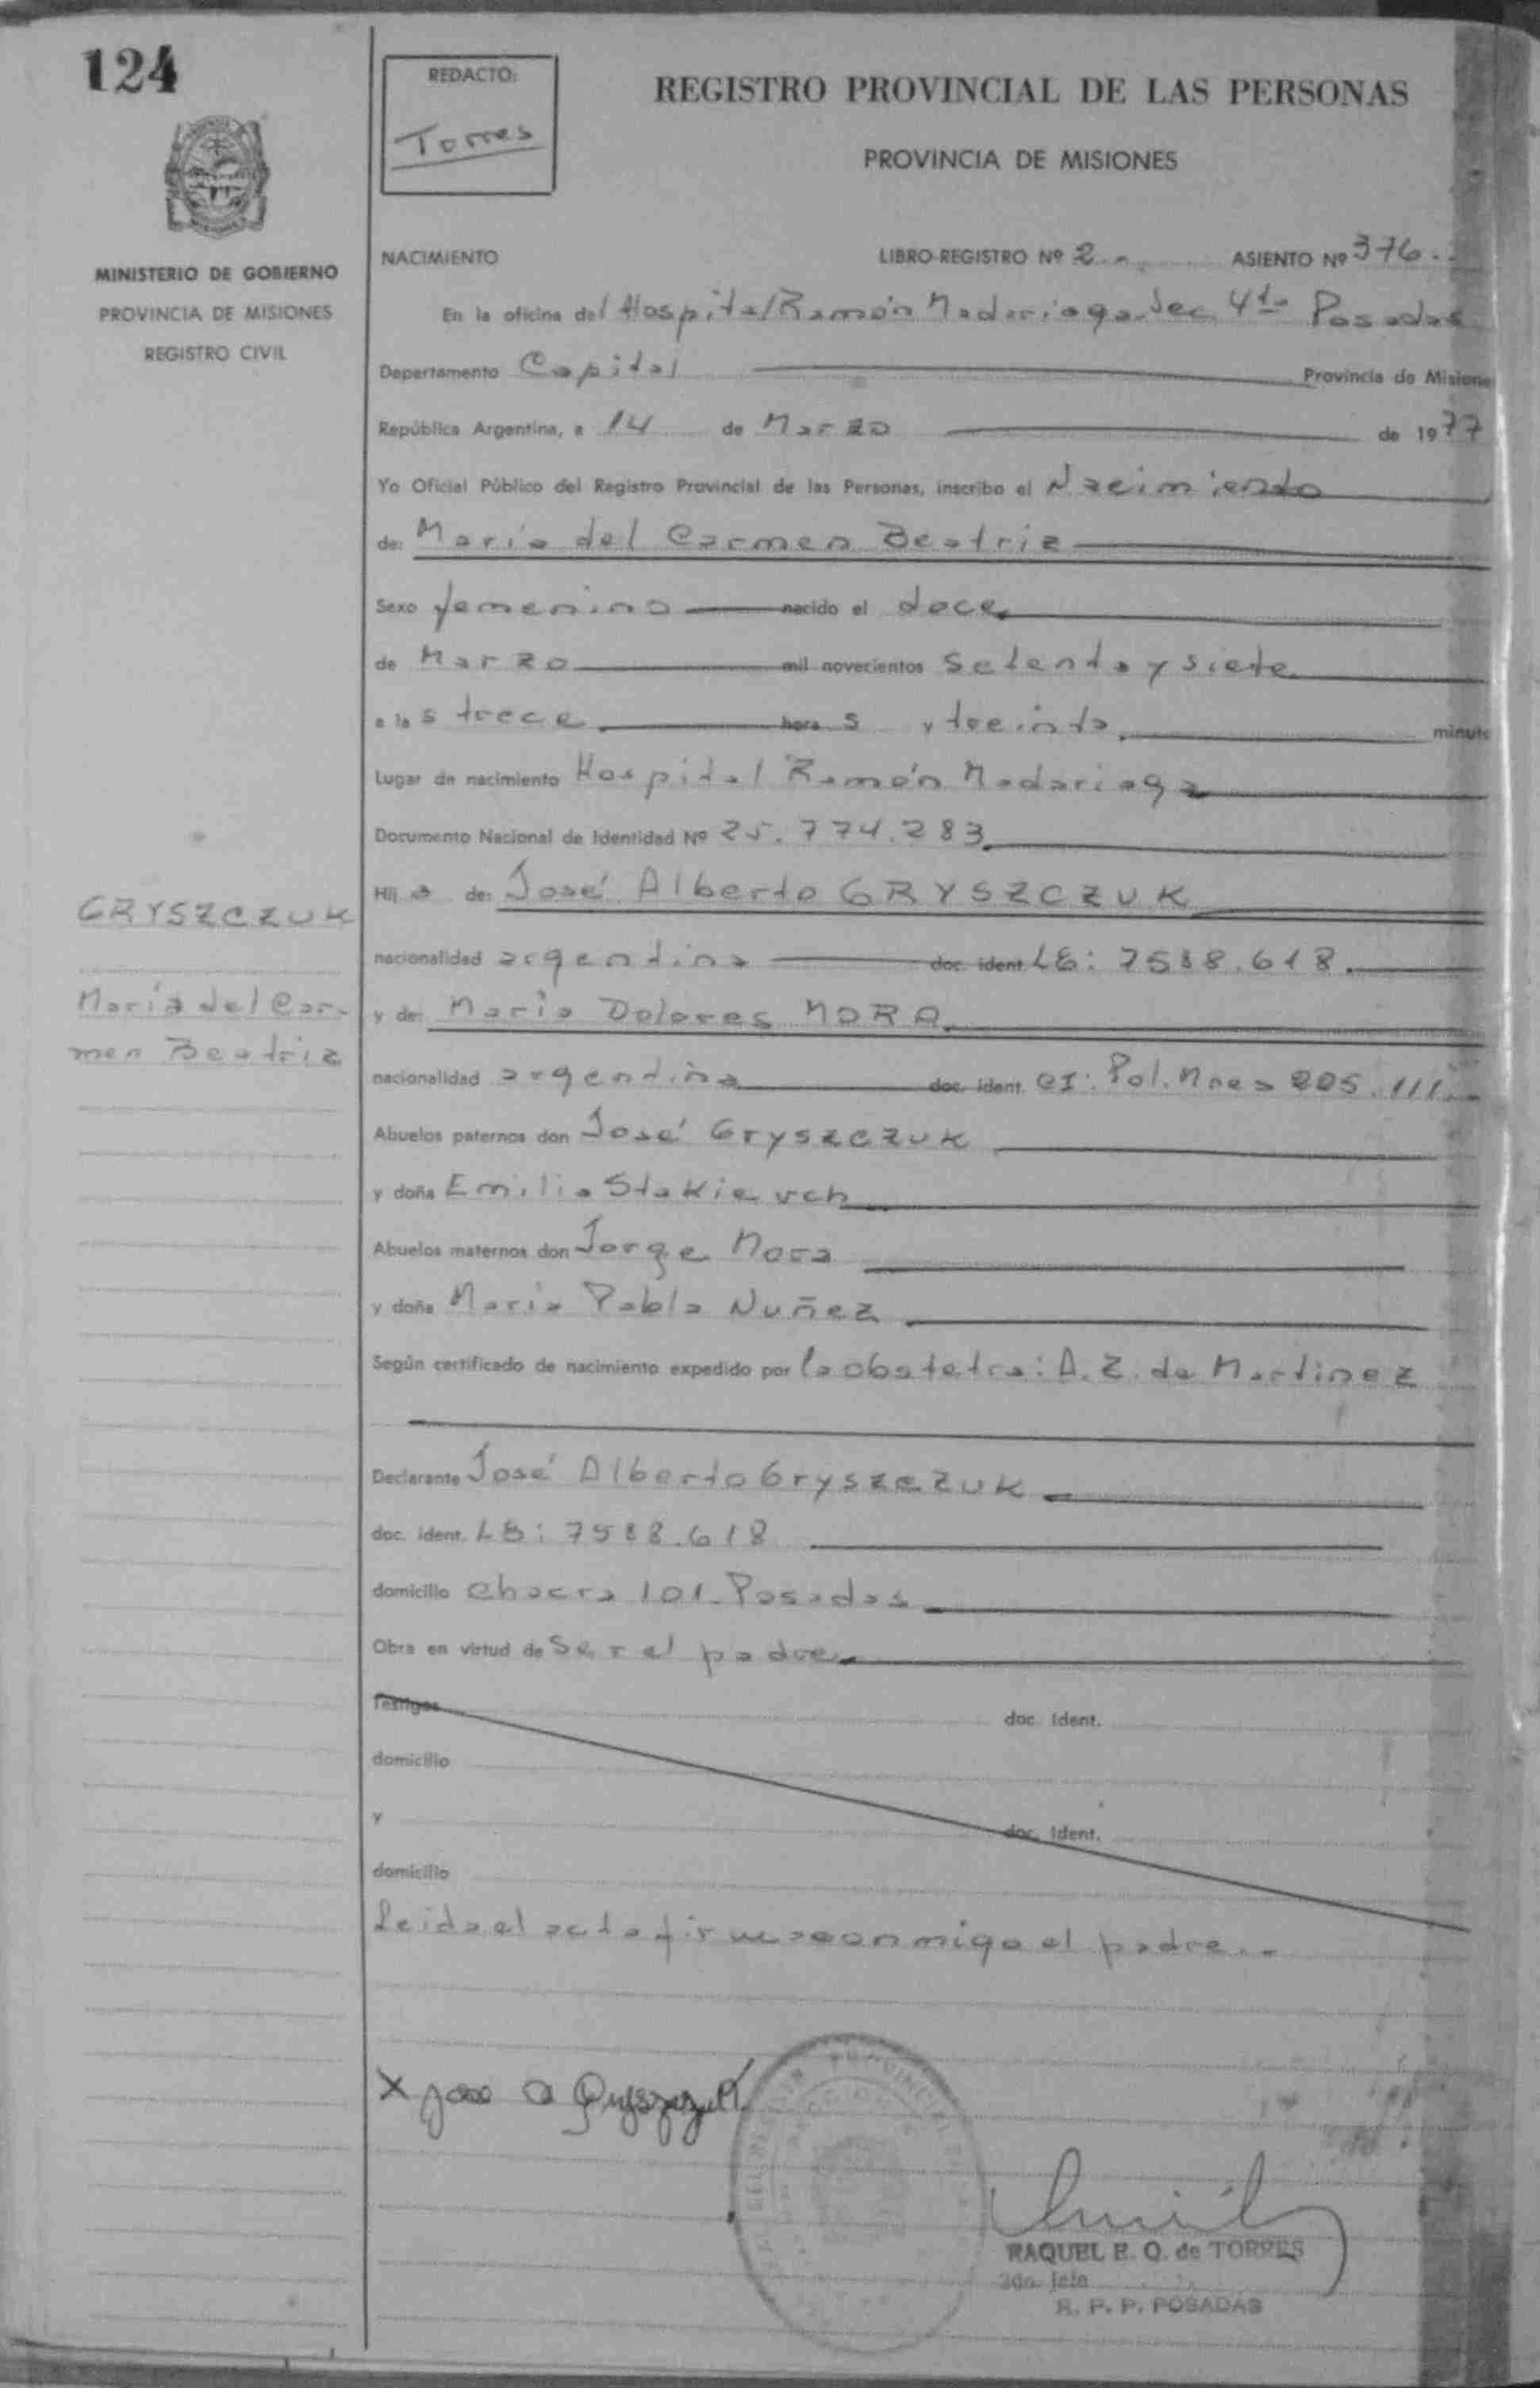 124
REDACTO:
Torres
REGISTRO PROVINCIAL DE LAS PERSONAS
PROVINCIA DE MISIONES
MINISTERIO DE GOBIERNO
PROVINCIA DE MISIONES
REGISTRO CIVIL
NACIMIENTO LIBRO-REGISTRO Nº 2 ASIENTO Nº 376
En la oficina del Hospital Ramón Madariaga Sec. 4ta Posadas
Departamento Capital Provincia de Misiones
República Argentina, a 14 de Marzo de 1977
Yo Oficial Público del Registro Provincial de las Personas, inscribo el Nacimiento
de: María del Carmen Beatriz
Sexo femenino nacido el doce
de Marzo mil novecientos setenta y siete
a las trece horas y treinta minuto
Lugar de nacimiento Hospital Ramón Madariaga
Documento Nacional de Identidad Nº 25.774.283
Hija de: José Alberto GRYSZCZUK
nacionalidad argentina doc. ident. LE: 7588.618
y de: María Dolores MORA
nacionalidad argentina doc. ident. CI: Pol. Mnes 205.111
Abuelos paternos don José Gryszczuk
y doña Emilia Stakievch
Abuelos maternos don Jorge Mora
y doña María Pabla Nuñez
Según certificado de nacimiento expedido por la obstetra: A. Z. de Martinez
Declarante José Alberto Gryszczuk
doc. ident. LE: 7588.618
domicilio Chacra 101 - Posadas
Obra en virtud de ser el padre
Testigos doc. Ident.
domicilio
y doc. Ident.
domicilio
Leida el acta firma conmigo el padre
GRYSZCZUK
María del Car-
men Beatriz
X Jose A Gryszczuk
RAQUEL E. Q. de TORRES
2do. Jefe
R. P. P. POSADAS